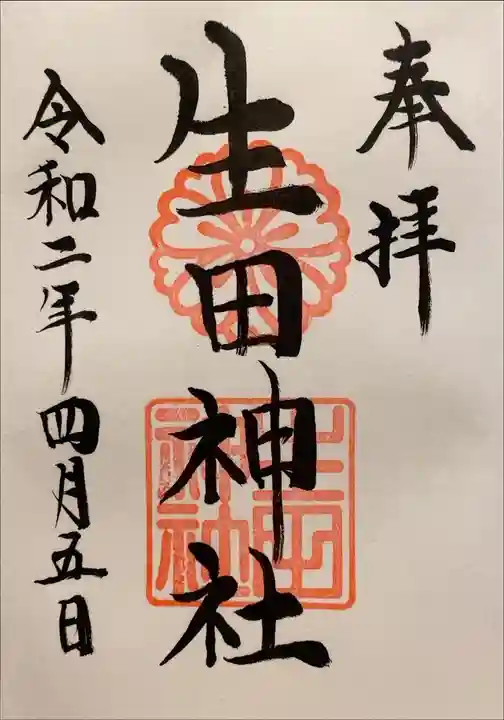 奉拝
生田神社
生田
神社
令和二年四月五日